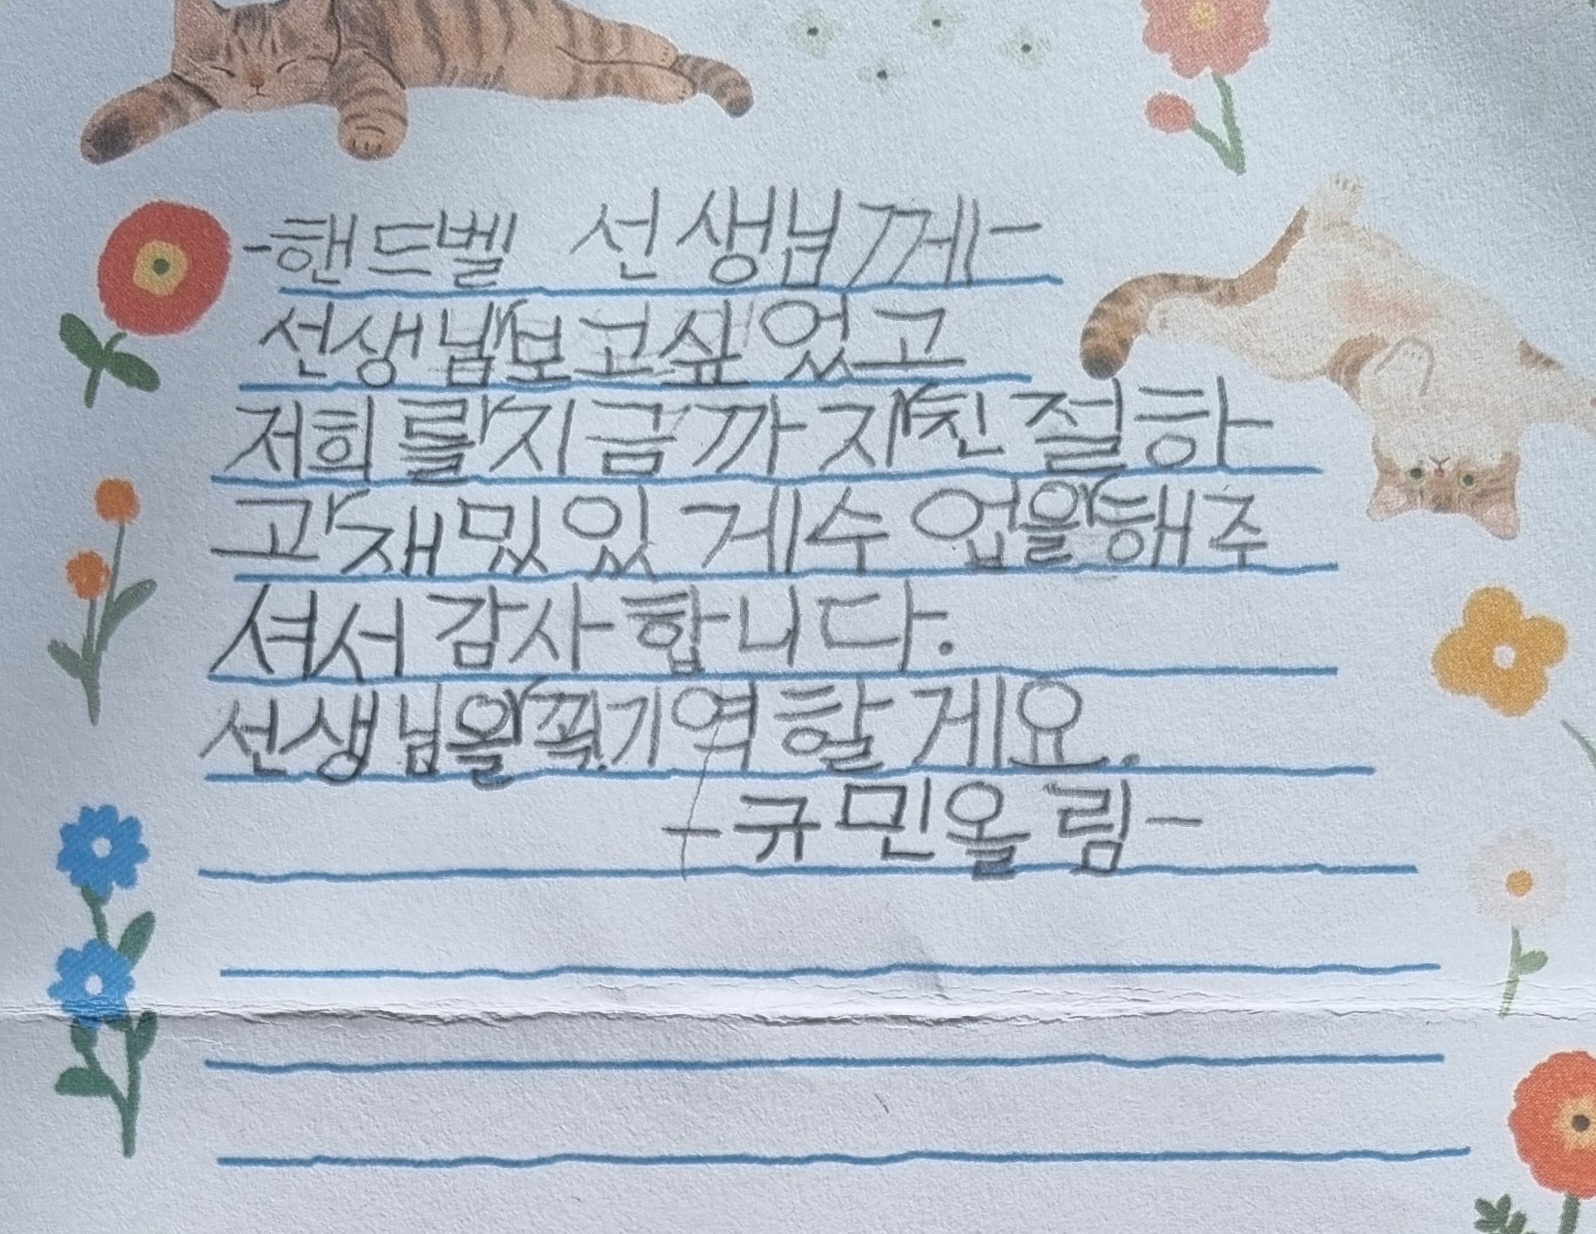 -핸드벨 선생님께-
선생님 보고싶었고
저희를 지금까지 친절하
고 재밌있게 수업을 해주
셔서 감사합니다.
선생님을 꼭 기역할게요.
-규민올림-